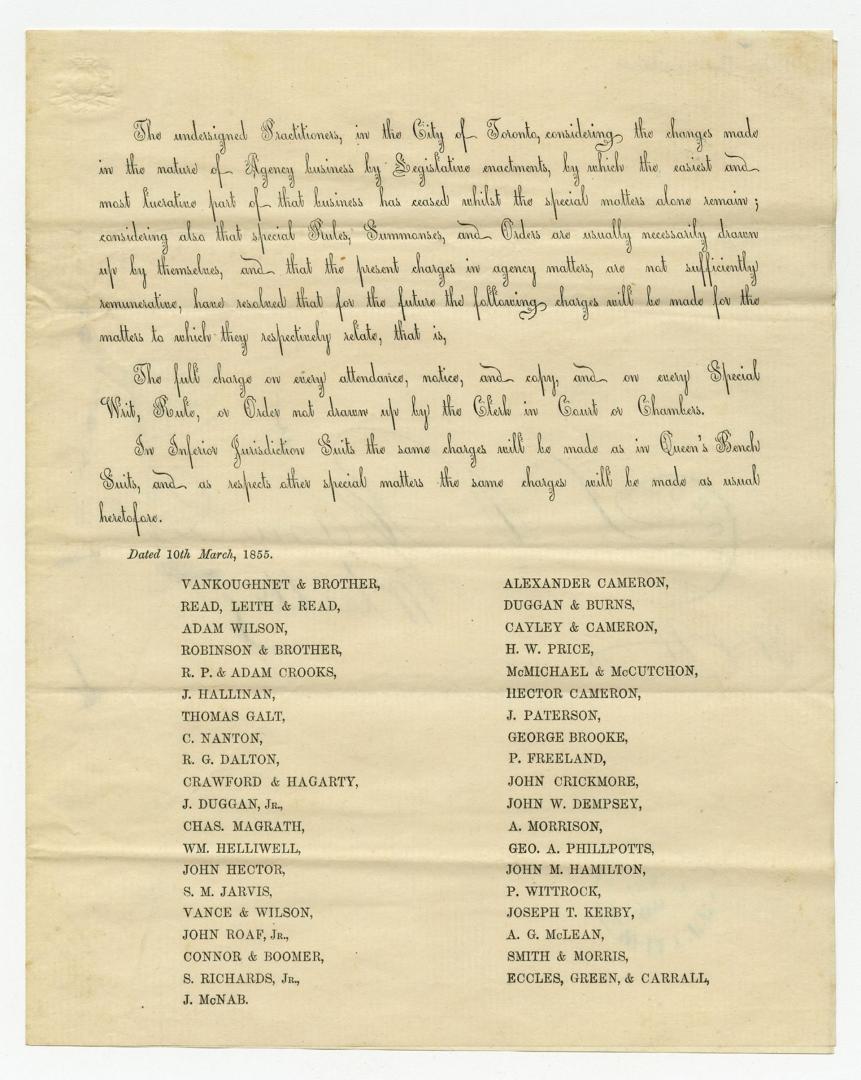 The undersigned Practitioners, in the City of Toronto, considering the changes made
in the nature of Agency business by Legislative enactments, by which the easiest and
most lucrative part of that business has ceased whilst the special matters alone remain ;
considering also that special Rules, Summonses, and Orders are usually necessarily drawn
up by themselves, and that the present charges in agency matters, are not sufficiently
remunerative, have resolved that for the future the following charges will be made for the
matters to which they respectively relate, that is,
The full charge on every attendance, notice, and copy, and on every Special
Writ, Rule, or Order not drawn up by the Clerk in Court or Chambers.
In Inferior Jurisdiction Suits the same charges will be made as in Queen's Bench
Suits, and as respects other special matters the same charges will be made as usual
heretofore.
Dated 10th March, 1855.
VANKOUGHNET & BROTHER,
READ, LEITH & READ,
ADAM WILSON,
ROBINSON & BROTHER,
R. P. & ADAM CROOKS,
J. HALLINAN,
THOMAS GALT,
C. NANTON,
R. G. DALTON,
CRAWFORD & HAGARTY,
J. DUGGAN, JR.,
CHAS. MAGRATH,
WM. HELLIWELL,
JOHN HECTOR,
S. M. JARVIS,
VANCE & WILSON,
JOHN ROAF, JR.,
CONNOR & BOOMER,
S. RICHARDS, JR.,
J. McNAB.
ALEXANDER CAMERON,
DUGGAN & BURNS,
CAYLEY & CAMERON,
H. W. PRICE,
McMICHAEL & McCUTCHON,
HECTOR CAMERON,
J. PATERSON,
GEORGE BROOKE,
P. FREELAND,
JOHN CRICKMORE,
JOHN W. DEMPSEY,
A. MORRISON,
GEO. A. PHILLPOTTS,
JOHN M. HAMILTON,
P. WITTROCK,
JOSEPH T. KERBY,
A. G. McLEAN,
SMITH & MORRIS,
ECCLES, GREEN, & CARRALL,